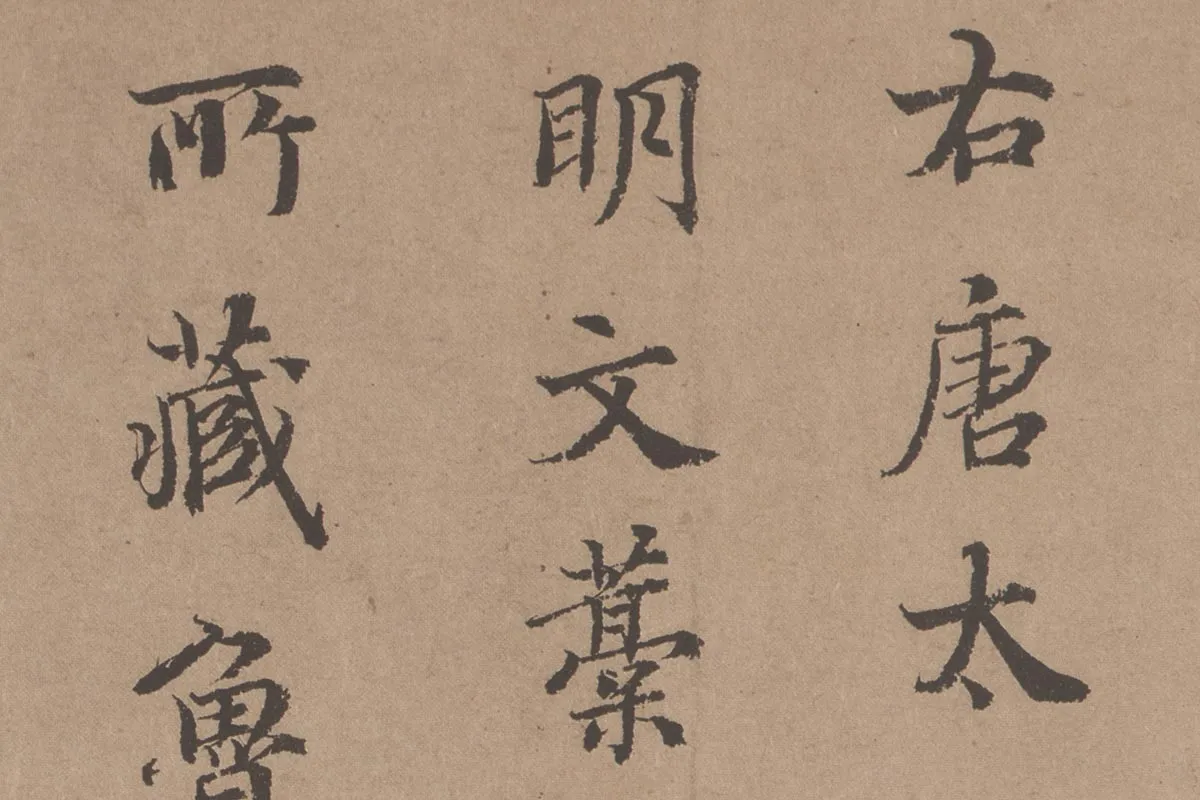 右唐太
明文藁
所藏魯